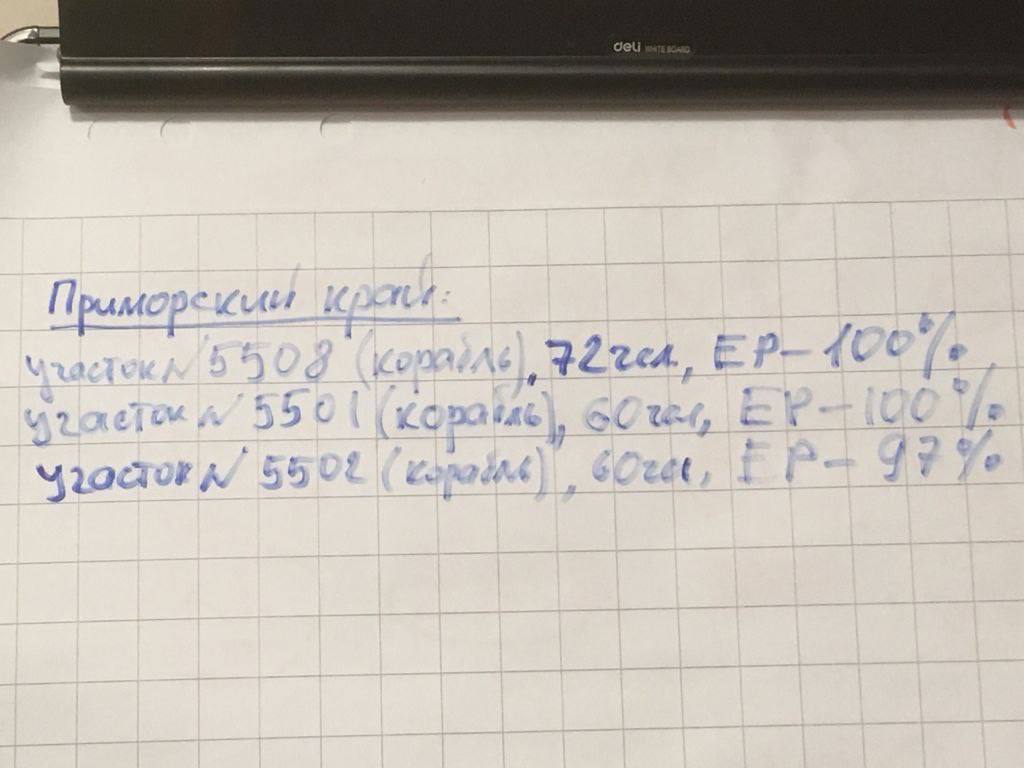 deli WHITE BOARD
Приморский край:
участок № 5508 (корабль), 72 чел, ЕР – 100%
участок № 5501 (корабль), 60 чел, ЕР – 100%
участок № 5502 (корабль), 60 чел, ЕР – 97%